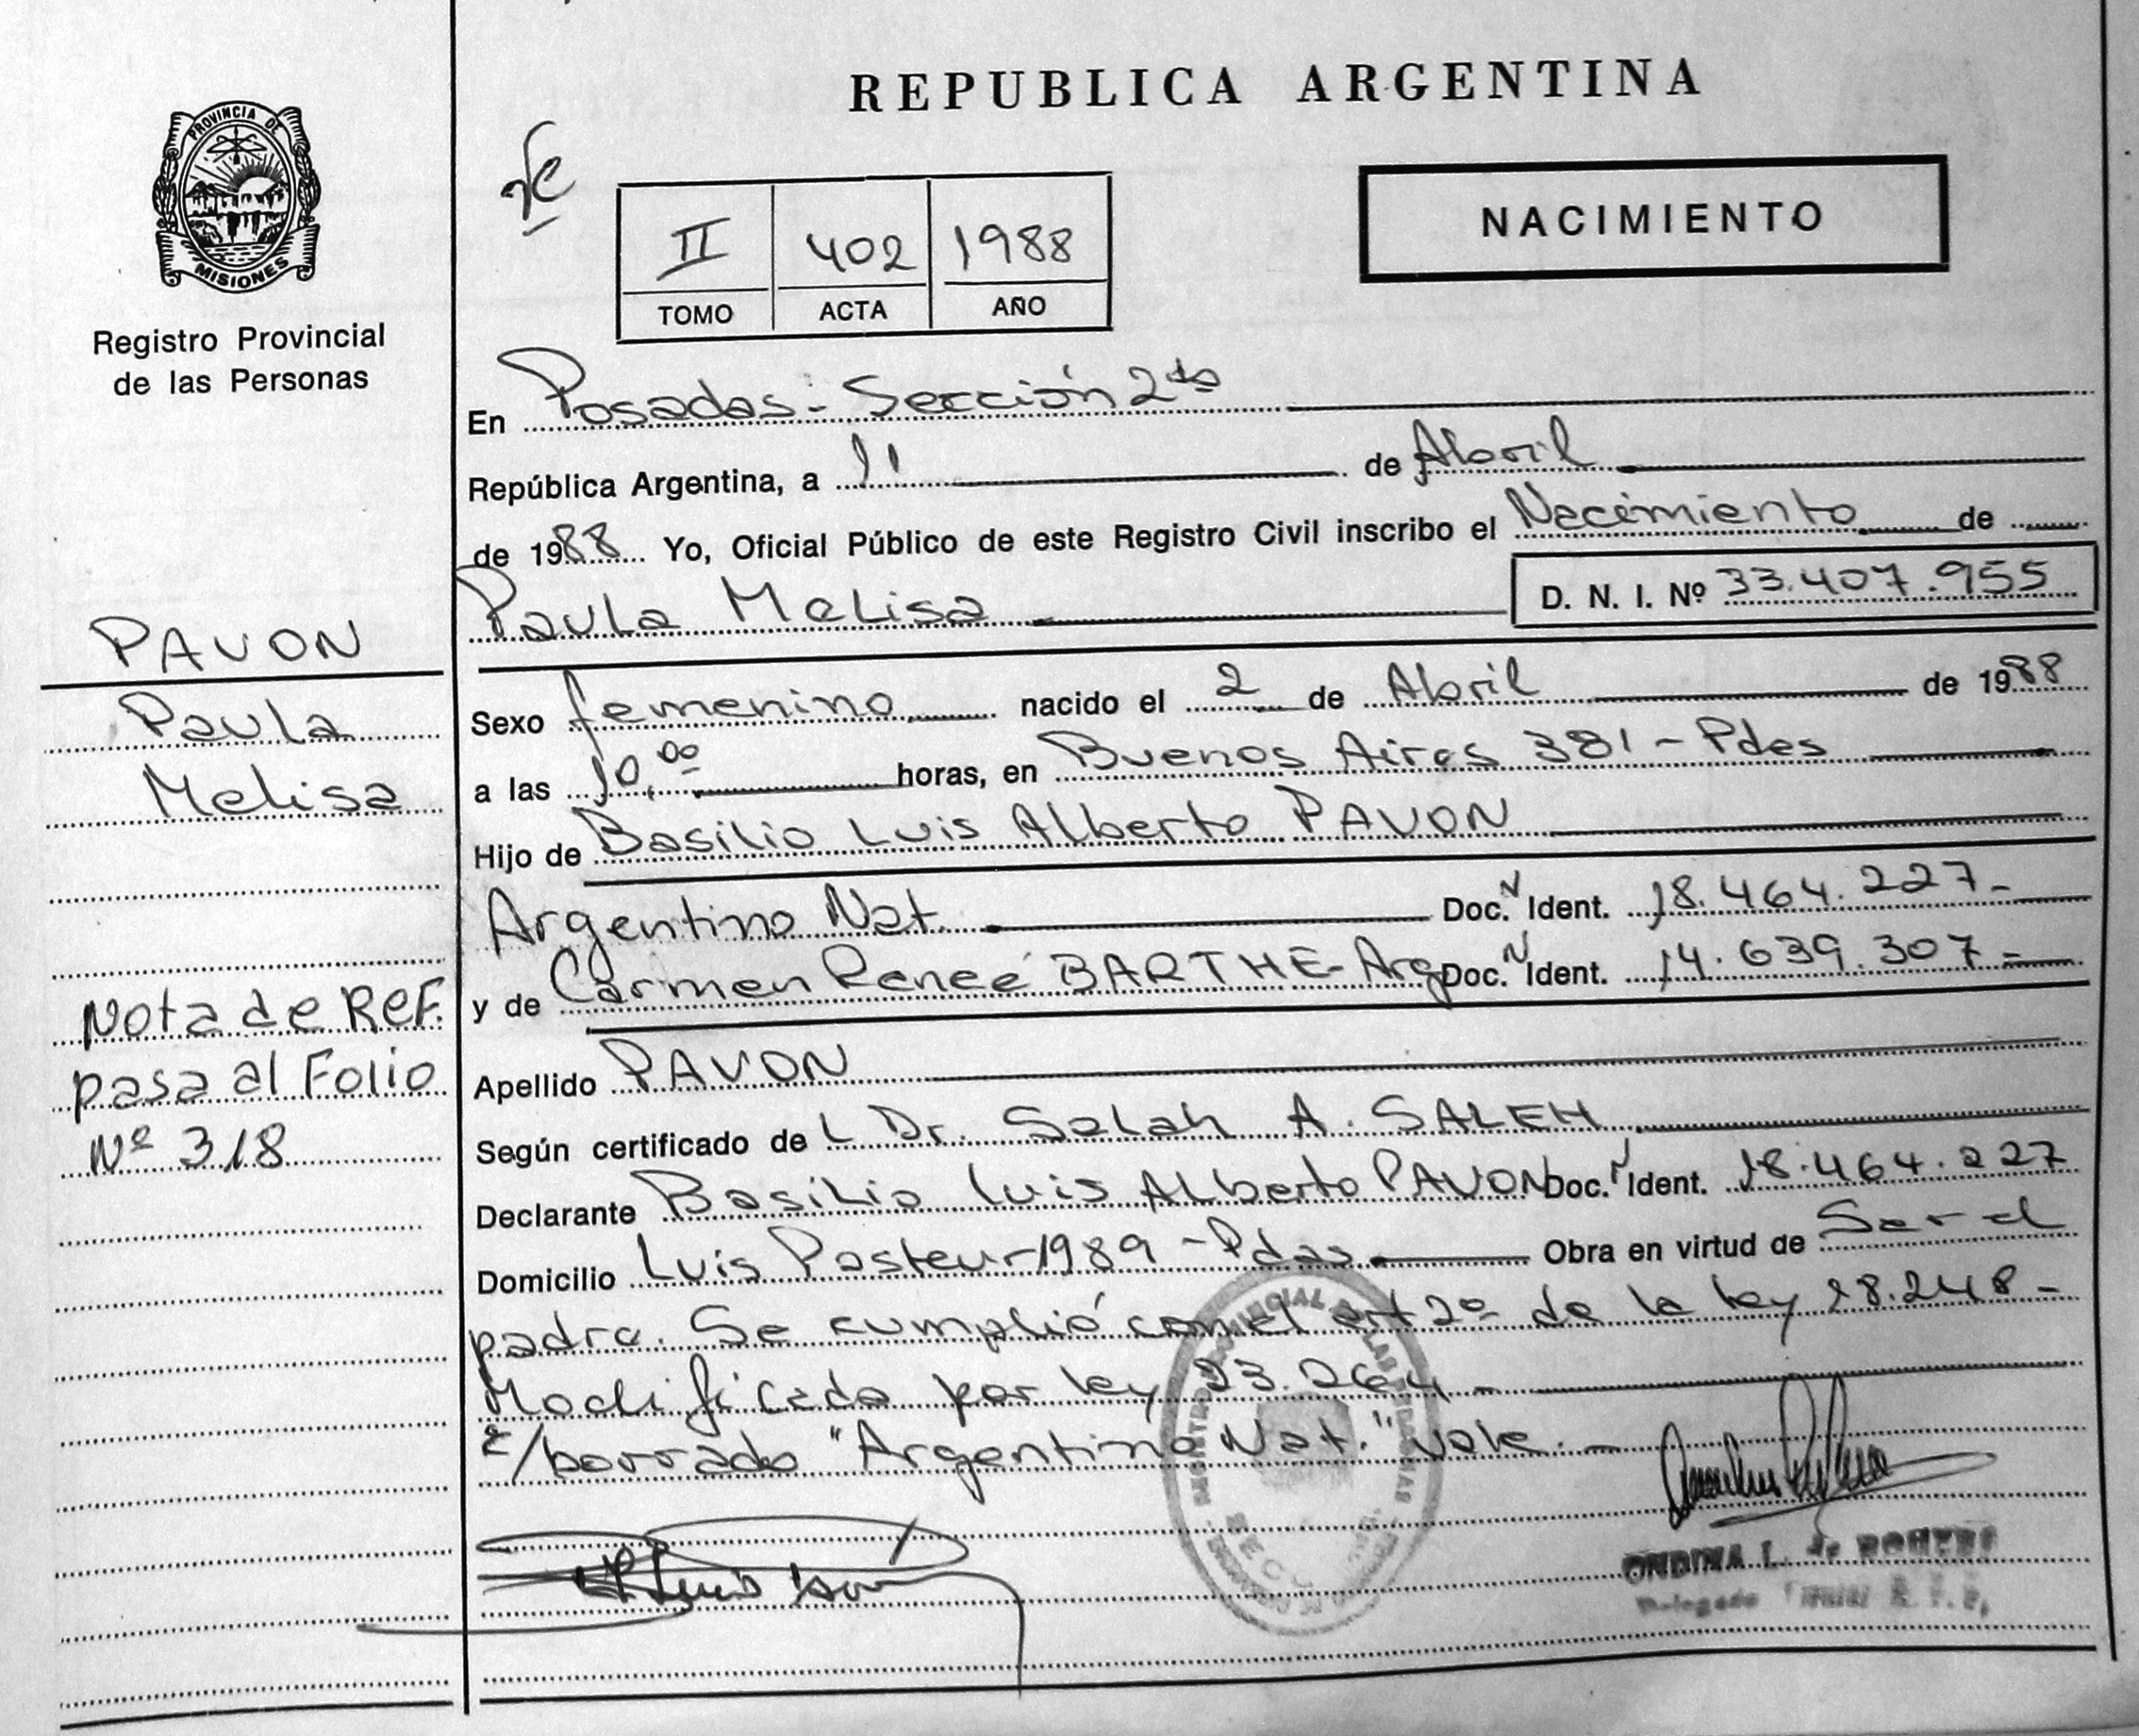 REPUBLICA ARGENTINA
PROVINCIA DE
MISIONES
Registro Provincial
de las Personas
II 402 1988
TOMO ACTA AÑO
NACIMIENTO
En Posadas - Sección 2da
República Argentina, a 11 de Abril
de 1988 Yo, Oficial Público de este Registro Civil inscribo el Nacimiento de
Paula Melisa
D. N. I. Nº 33.407.955
PAVON
Paula
Melisa
Nota de REF.
pasa al Folio
Nº 318
Sexo femenino nacido el 2 de Abril de 1988
a las 10,00 horas, en Buenos Aires 381 - Pdas
Hijo de Basilio Luis Alberto PAVON
Argentino Nat. Doc. N Ident. 18.464.227-
y de Carmen Reneé BARTHE - Arg Doc. N Ident. 14.639.307-
Apellido PAVON
Según certificado de L Dr. Salah A. SALEH
Declarante Basilio Luis Alberto PAVON Doc. N Ident. 18.464.227
Domicilio Luis Pasteur 1989 - Pdas Obra en virtud de Ser el
padre. Se cumplió con el art 2º de la ley 18.248-
Modificado por ley 23.264-
s/borrado "Argentino Nat." vale.-
ONDINA L. de